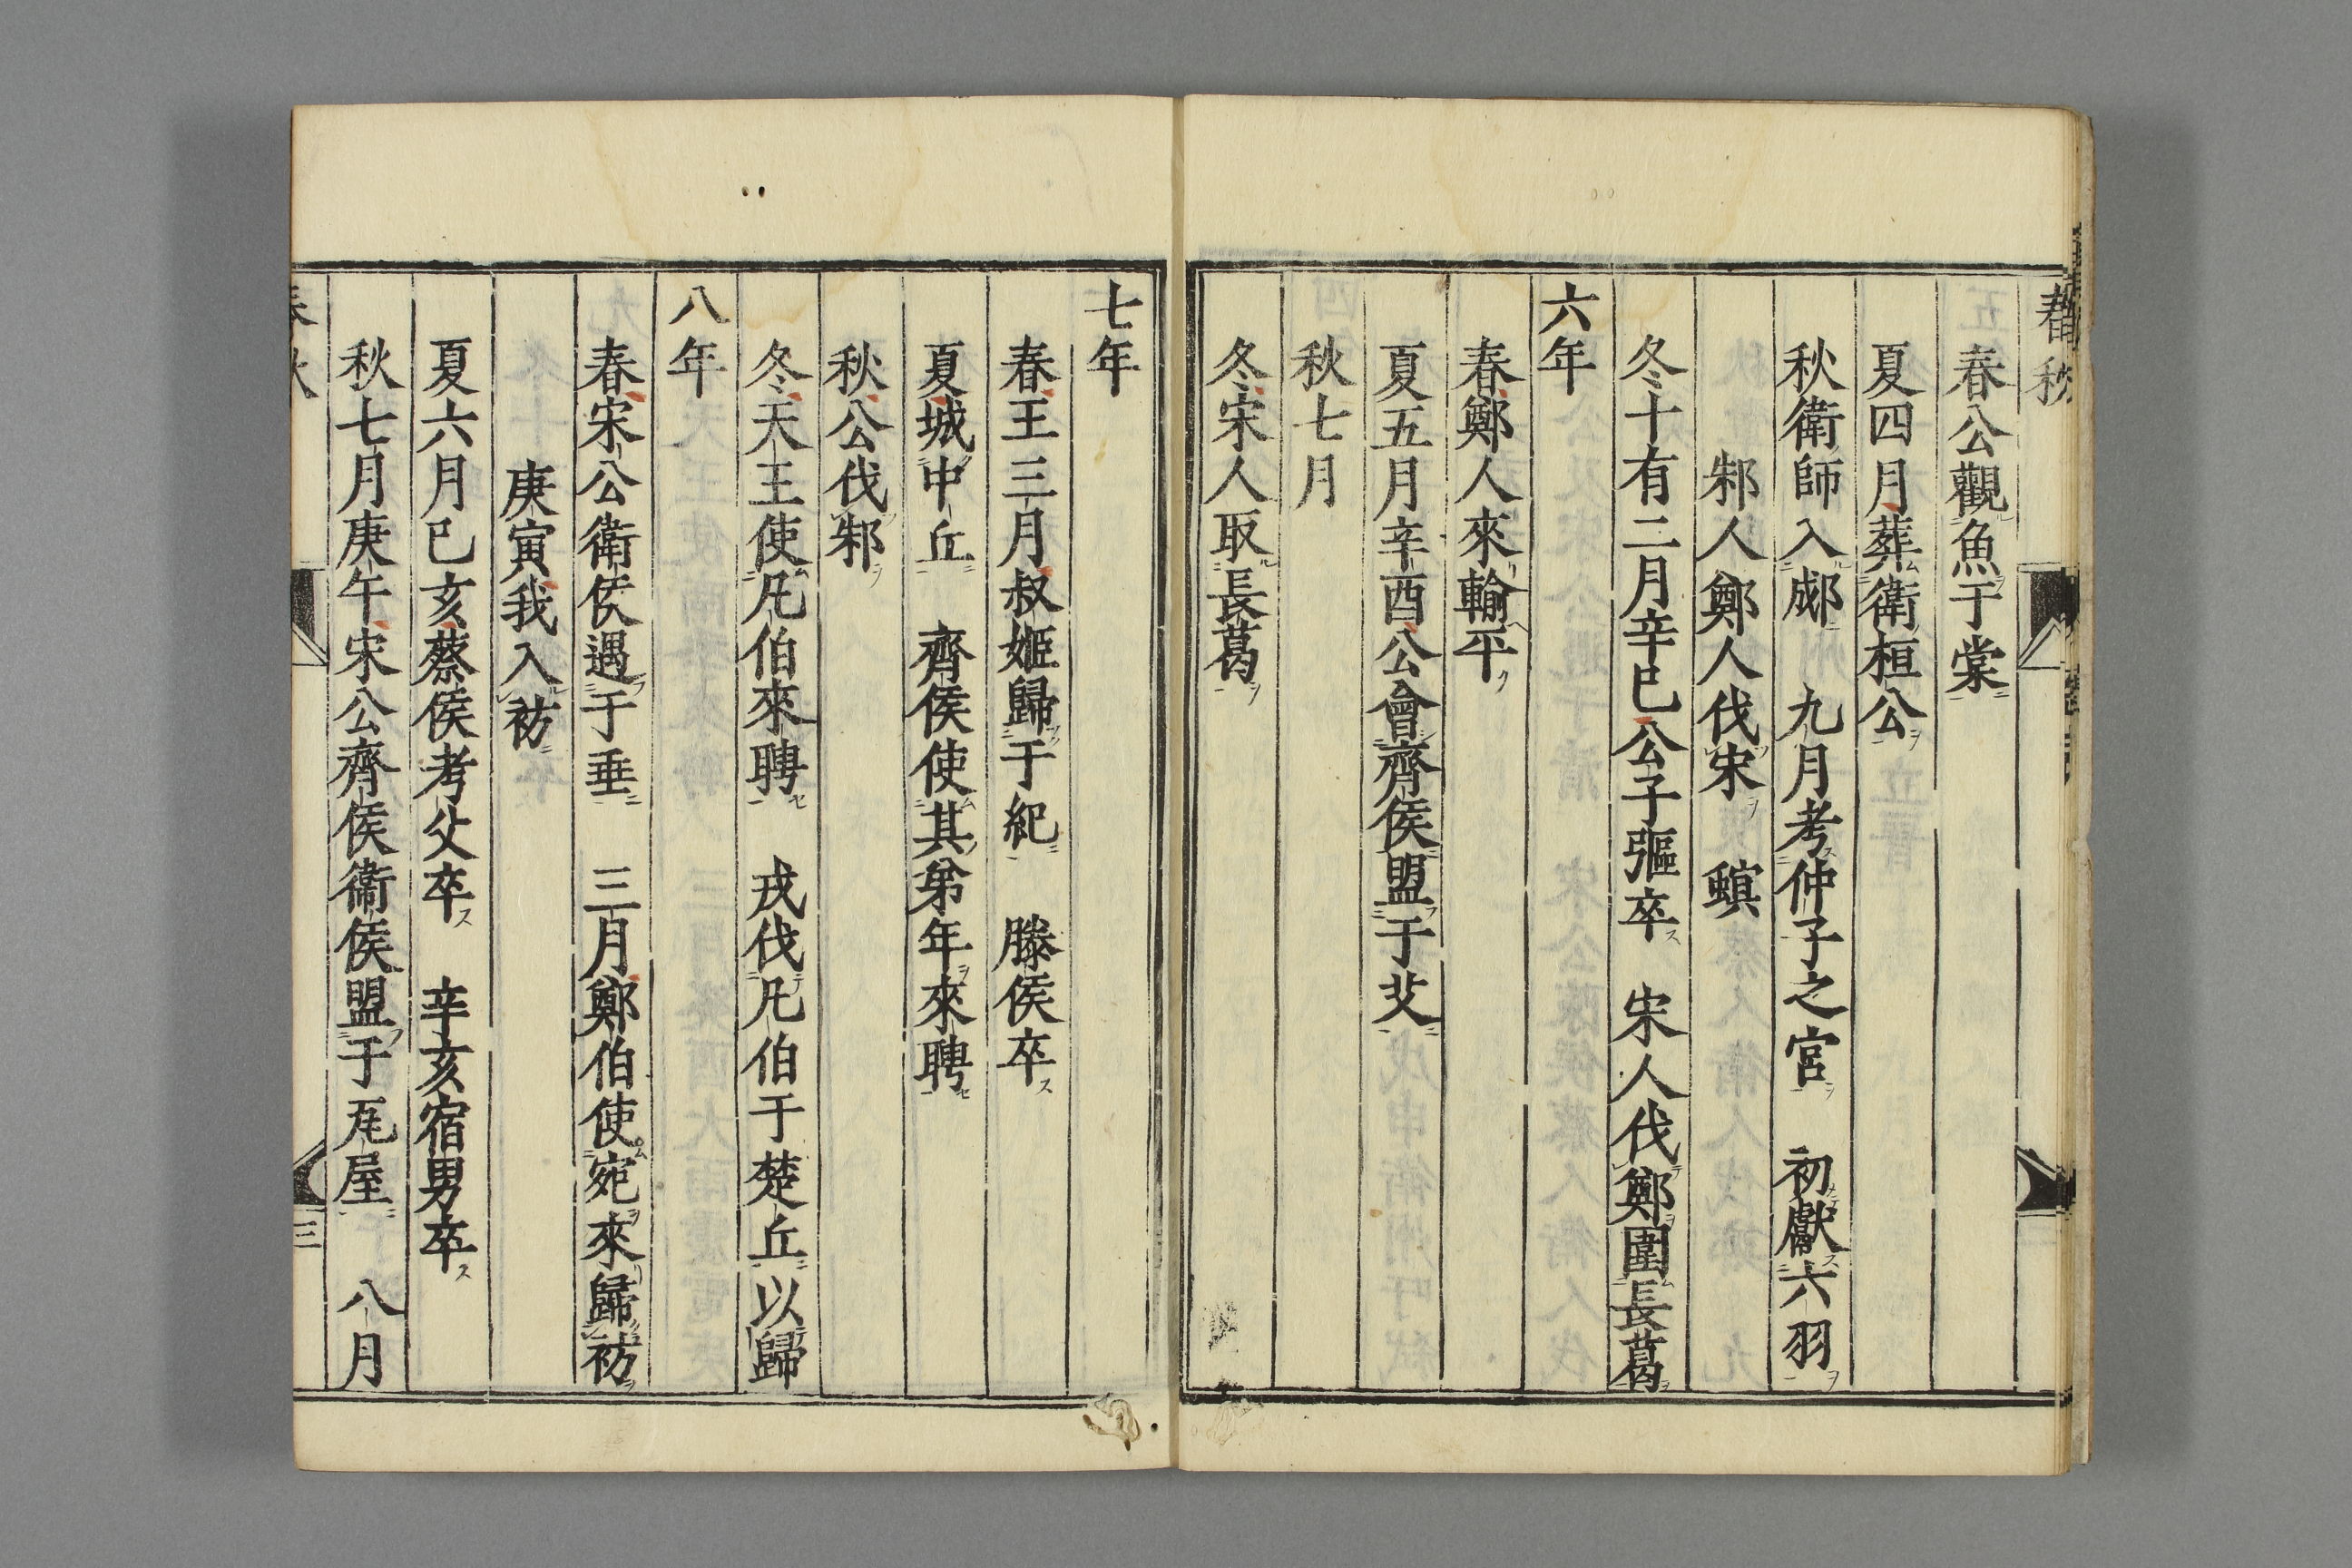 春秋
春公觀魚于棠
夏四月葬衛桓公
秋衛師入郕　九月考仲子之宮　初獻六羽
邾人鄭人伐宋　螟
冬十有二月辛巳公子彄卒　宋人伐鄭圍長葛
六年
春鄭人來輸平
夏五月辛酉公會齊侯盟于艾
秋七月
冬宋人取長葛
七年
春王三月叔姬歸于紀　滕侯卒
夏城中丘　齊侯使其弟年來聘
秋公伐邾
冬天王使凡伯來聘　戎伐凡伯于楚丘以歸
八年
春宋公衛侯遇于垂　三月鄭伯使宛來歸祊
庚寅我入祊
夏六月己亥蔡侯考父卒　辛亥宿男卒
秋七月庚午宋公齊侯衞侯盟于瓦屋　八月
春秋
三